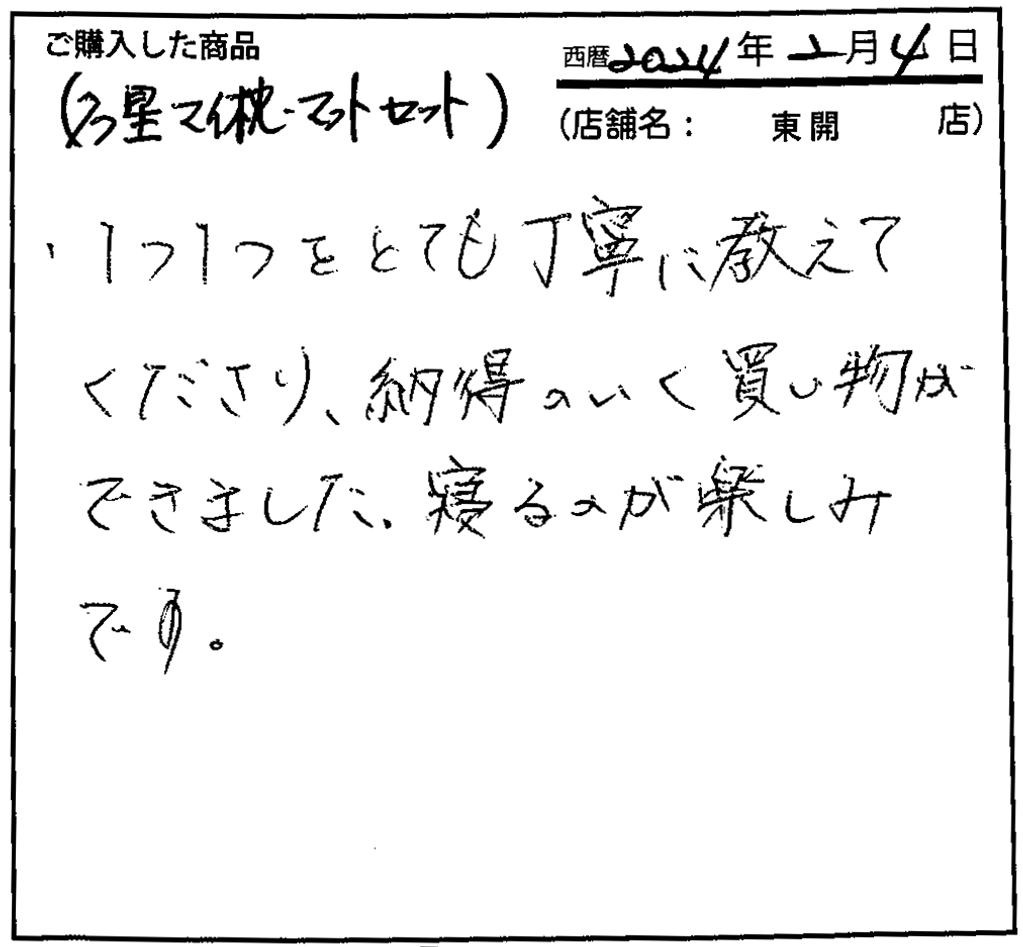 ご購入した商品
西暦2024年2月4日
(星マイ枕・マットセット)
(店舗名: 東開 店)
・1つ1つをとても丁寧に教えて
くださり、納得のいく買い物が
できました、寝るのが楽しみ
です。